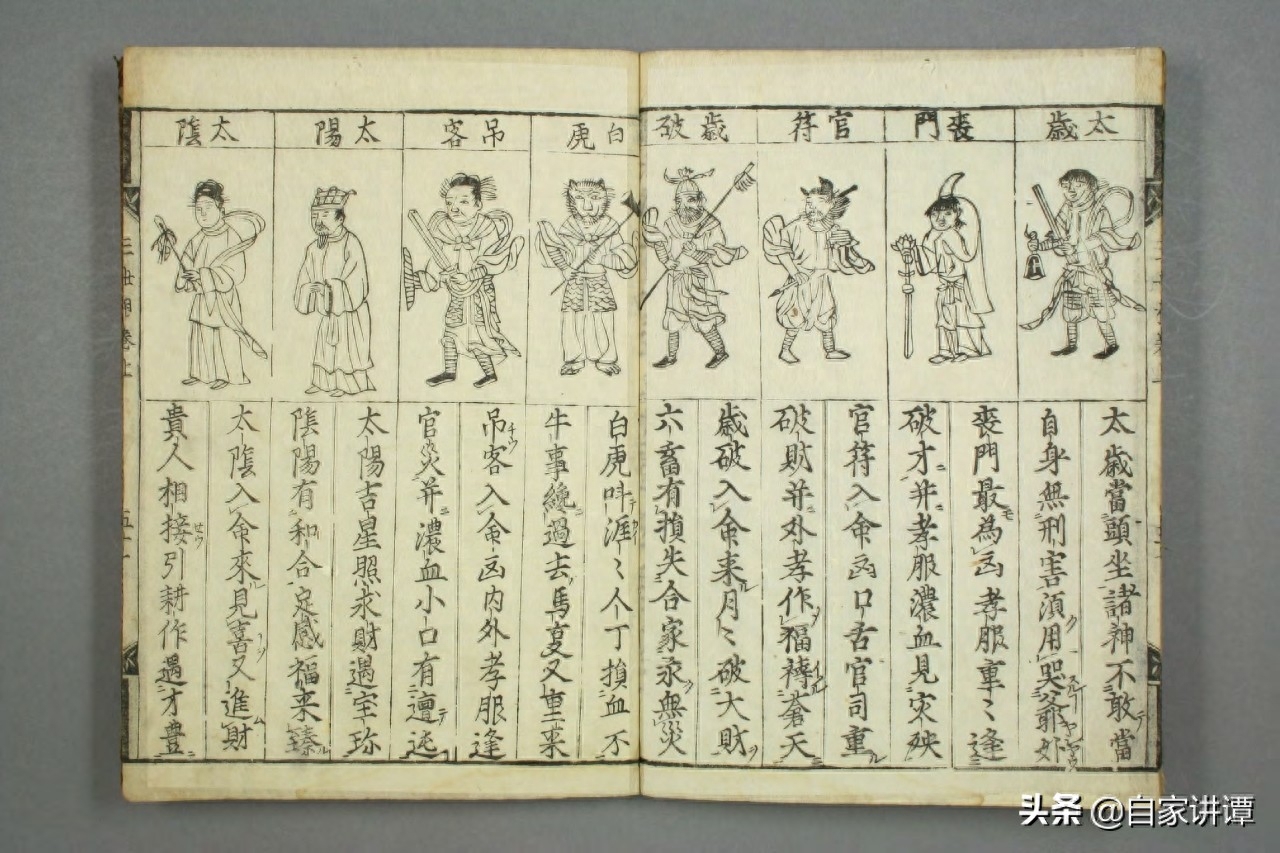 太歳
喪門
官符
歳破
白虎
吊客
太陽
太陰
太歳當頭坐諸神不敢當
自身無刑害須用哭爺娘
喪門最為凶孝服重〻逢
破才并孝服濃血見灾殃
官符入命凶口舌官司重
破財并外孝作福禱蒼天
歳破入命来月〻破大財
六畜有損失合家永無災
白虎 〻人丁損血不
牛事纔過去馬 又重来
吊客入命凶内外孝服逢
官災并濃血小口有 迍
太陽吉星照求財遇宝珎
陰陽有和合定感福来臻
太陰入命來見喜又進財
貴人相接引耕作遇才豊
三世相卷上
頭条 @自家讲谭